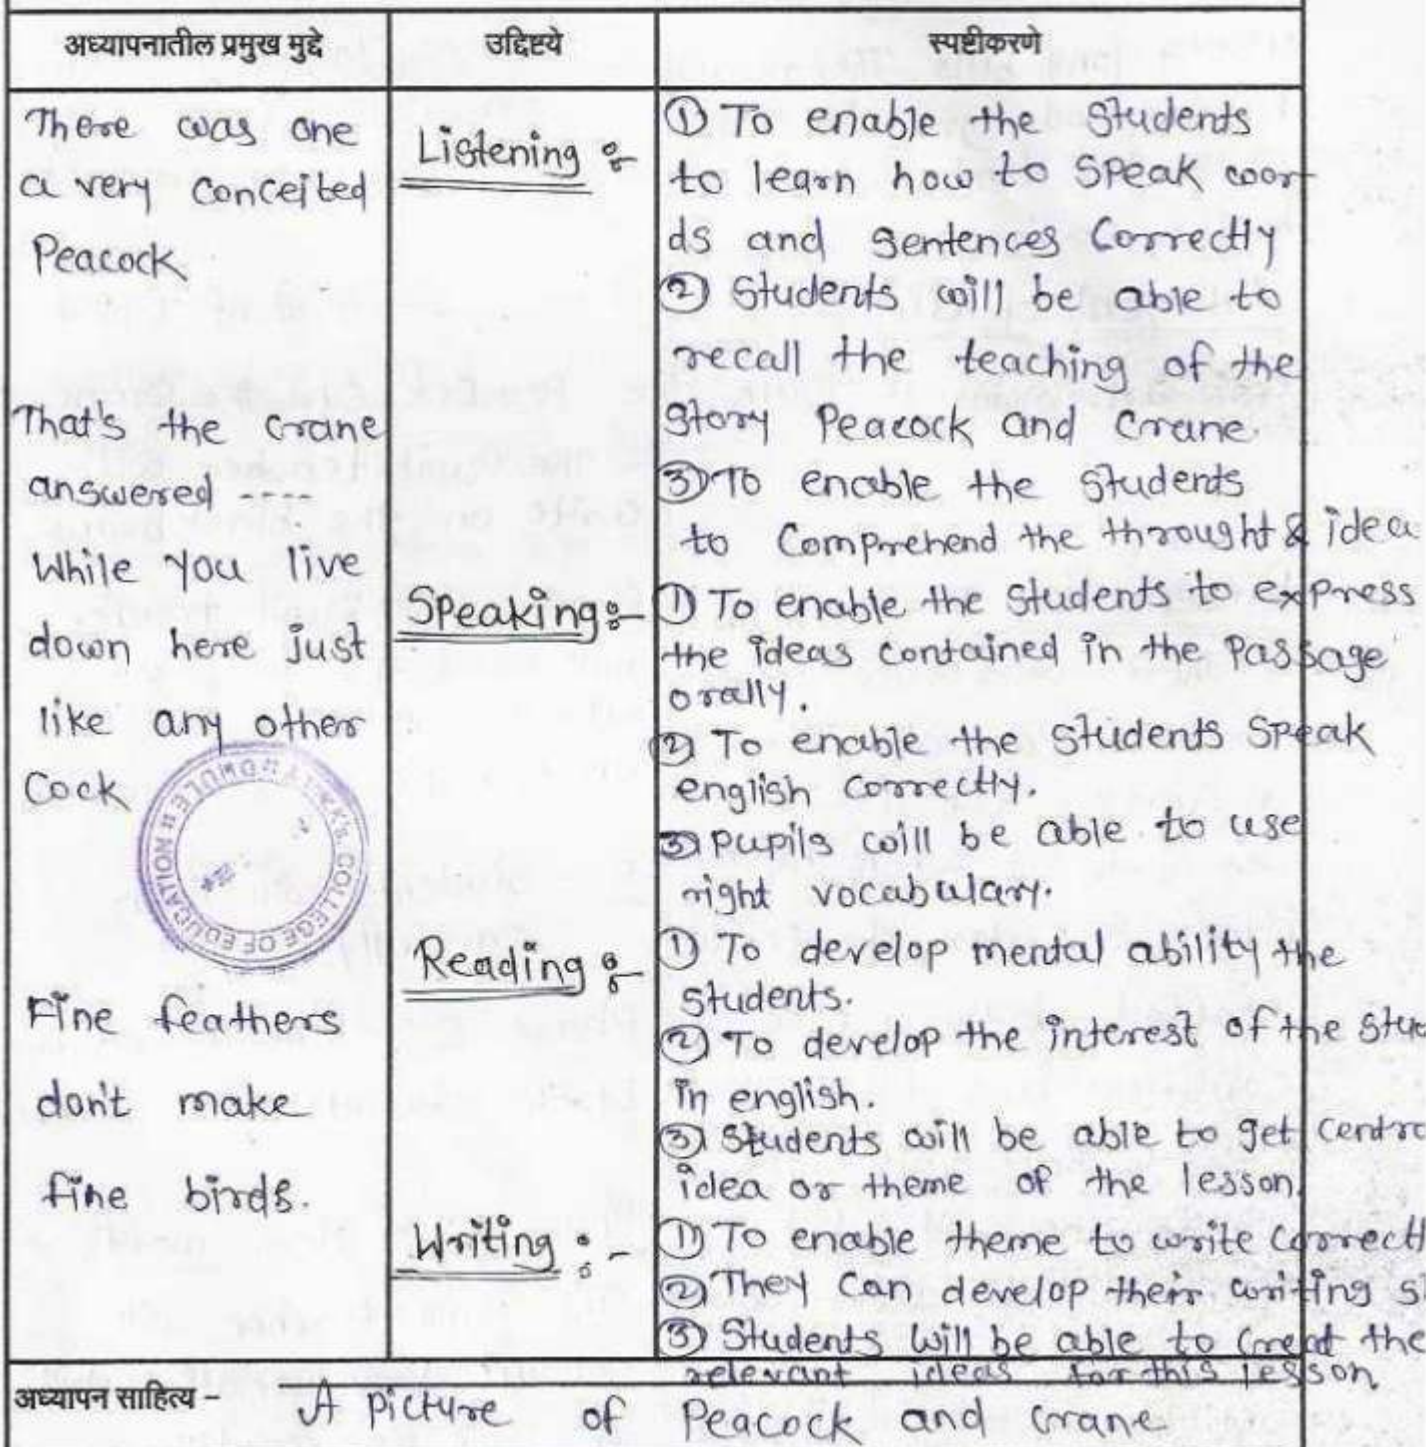 अध्यापनातील प्रमुख मुद्दे
उद्दिष्टये
स्पष्टीकरणे
There was one
a very conceited
Peacock
That's the crane
answered ----
While you live
down here just
like any other
Cock
COLLEGE OF EDUCATION
Fine feathers
don't make
fine birds.
Listening :-
① To enable the Students
to learn how to Speak wor
ds and sentences Correctly
② Students will be able to
recall the teaching of the
Story Peacock and Crane.
③ To enable the Students
to Comprehend the throught & idea
Speaking :-
① To enable the Students to express
the ideas contained in the Passage
orally.
② To enable the Students Speak
english correctly.
③ Pupils will be able to use
right vocabulary.
Reading :-
① To develop mental ability the
Students.
② To develop the interest of the stu
in english.
③ Students will be able to get centra
idea or theme of the lesson.
Writing :-
① To enable theme to write Correctl
② They Can develop their writing s
③ Students will be able to Creat the
relevant ideas for this lesson
अध्यापन साहित्य - A Picture of Peacock and crane